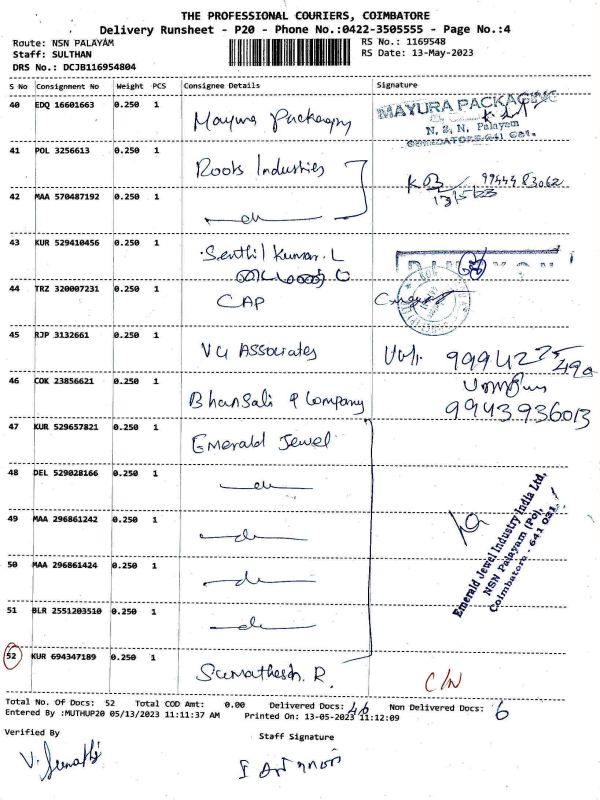 THE PROFESSIONAL COURIERS, COIMBATORE
Delivery Runsheet - P20 - Phone No.:0422-3505555 - Page No.:4
Route: NSN PALAYAM
RS No.: 1169548
Staff: SULTHAN
RS Date: 13-May-2023
DRS No.: DCJB116954804
S No Consignment No Weight PCS Consignee Details Signature
40 EDQ 16601663 0.250 1 Mayura Packaging
MAYURA PACKAGING
N. S. N. Palayam
COIMBATORE-641 031.
41 POL 3256613 0.250 1 Roots Industries
99444 83062
13/5/23
42 MAA 570487192 0.250 1 do
43 KUR 529410456 0.250 1 Senthil Kumar. L
44 TRZ 320007231 0.250 1 CAP
45 RJP 3132661 0.250 1 VG Associates
46 COK 23856621 0.250 1 Bhansali & Company
9943936013
47 KUR 529657821 0.250 1 Emerald Jewel
48 DEL 529028166 0.250 1 do
Emerald Jewel Industry India Ltd,
NSN Palayam (Po),
Coimbatore - 641 031.
49 MAA 296861242 0.250 1 do
50 MAA 296861424 0.250 1 do
51 BLR 2551203510 0.250 1 do
52 KUR 694347189 0.250 1 Sumathesh. R. C/N
Total No. Of Docs: 52 Total COD Amt: 0.00 Delivered Docs: 46 Non Delivered Docs: 6
Entered By :MUTHUP20 05/13/2023 11:11:37 AM Printed On: 13-05-2023 11:12:09
Verified By
Staff Signature